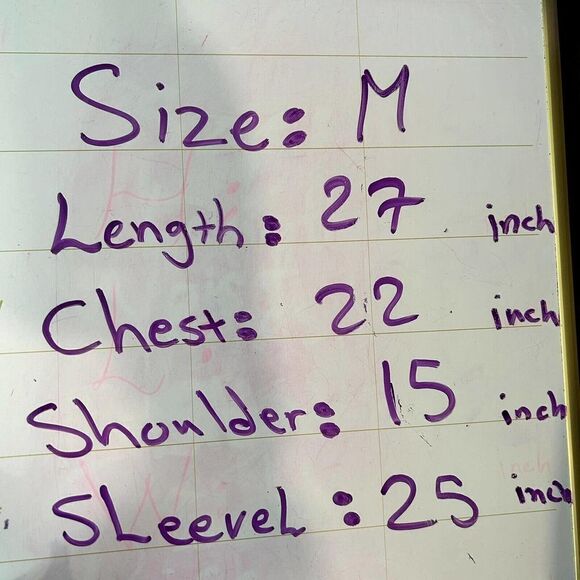 Size: M
Length: 27 inch
Chest: 22 inch
Shoulder: 15 inch
SLeeveL: 25 inch